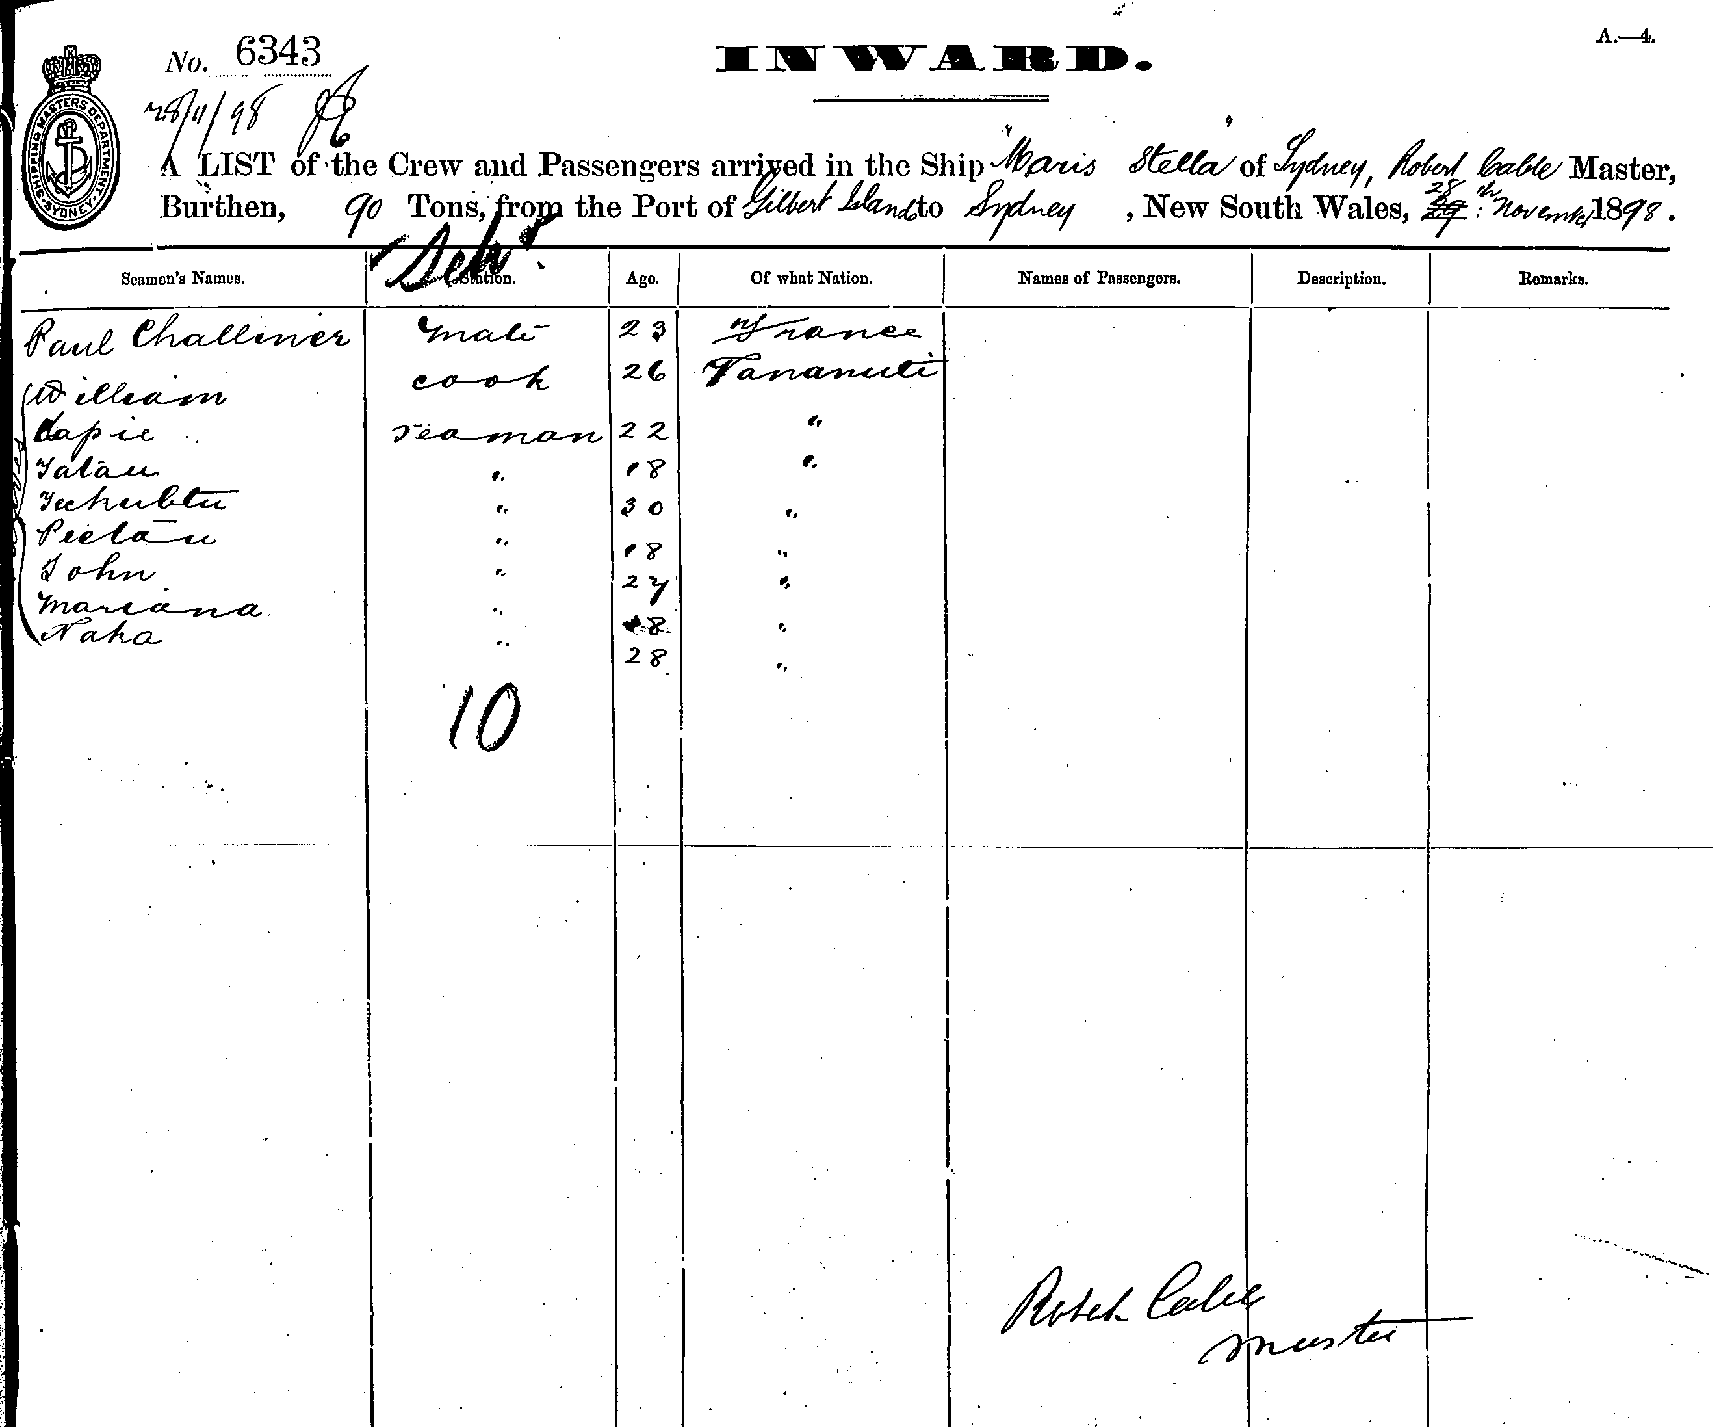 A.—4.
No. 6343
INWARD.
28/11/98
SHIPPING MASTERS DEPARTMENT SYDNEY
A LIST of the Crew and Passengers arrived in the Ship "Maris Stella" of Sydney, Robert Cable Master,
Burthen, 90 Tons, from the Port of Gilbert Island to Sydney, New South Wales, 28 29th November 1898.
Schr.
Seamen's Names. Station. Age. Of what Nation. Names of Passengers. Description. Remarks.
Paul Challiner mate 23 France
William cook 26 Tananuti
Lapie seaman 22 "
Tatau " 18 "
" 30 "
Pietau " 18 "
John " 27 "
Mariana " 18 "
Naka " 28 "
10
Robert Cable
Master